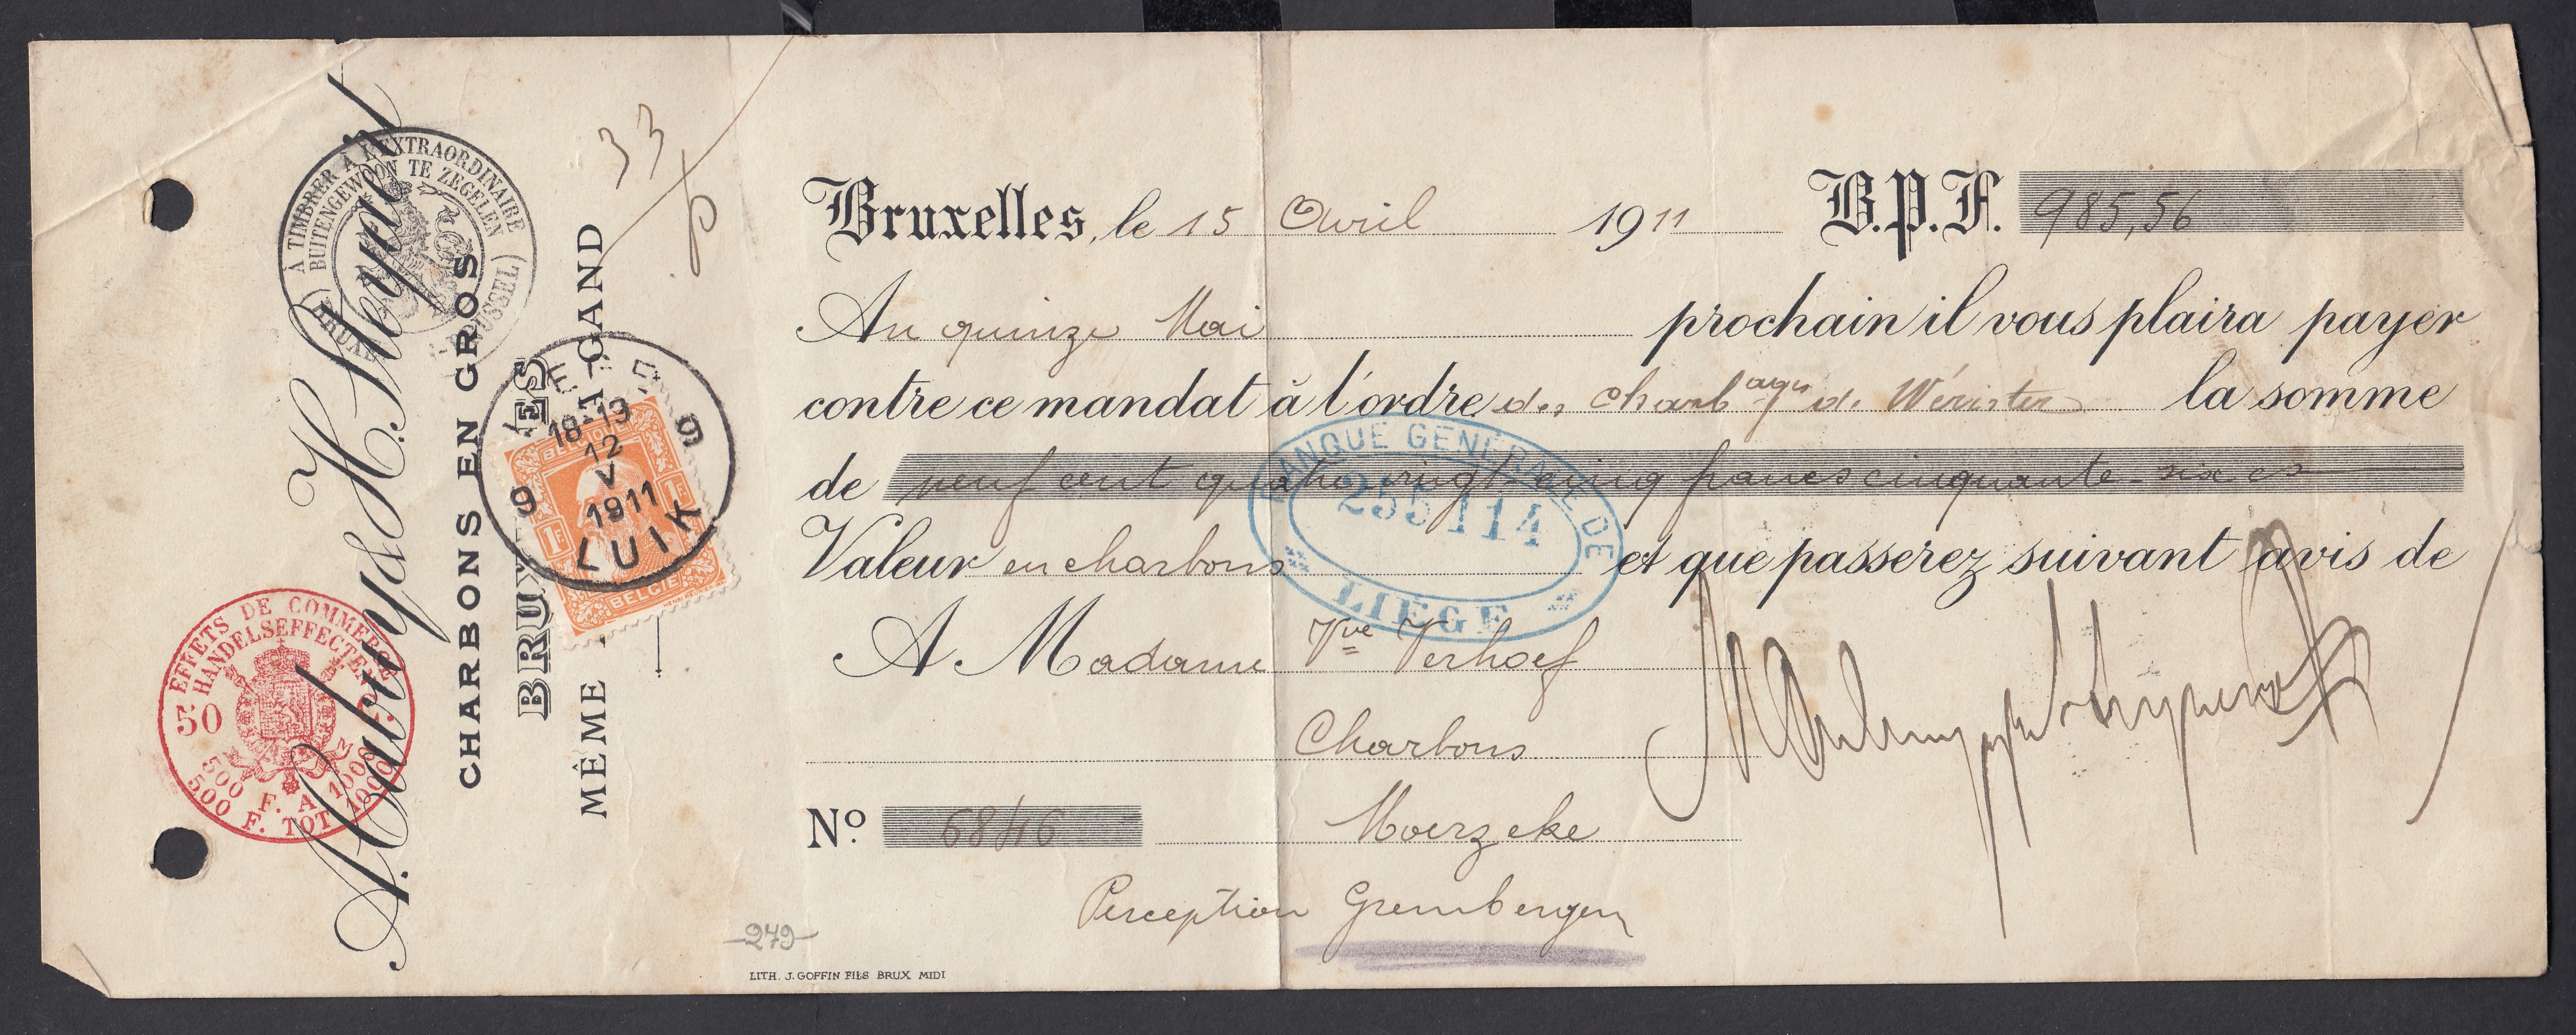 A. Cabuy & H. Sleypen
CHARBONS EN GROS
MÊME À GAND
À TIMBRER À L'EXTRAORDINAIRE
BUITENGEWOON TE ZEGELEN
EFFETS DE COMMERCE
HANDELSEFFECTEN
50
500 F. A 1000
500 F. TOT 1000
BELGIQUE
1F 1F
BELGIË
9 9
18-19
12
V
1911
LUIK
33
Bruxelles, le 15 Avril 1911 B.P.F. 985,56
Au quinze Mai prochain il vous plaira payer
contre ce mandat à l'ordre des Charbages de Wérister la somme
de neuf cent quatre vingt cinq francs cinquante-six cs
Valeur en charbons et que passerez suivant avis de
BANQUE GÉNÉRALE DE LIÉGE
255114
A Madame Vve Verhoef
Charbons
No. 6846 Moerzeke
Perception Grembergen
279
LITH. J. GOFFIN FILS BRUX MIDI